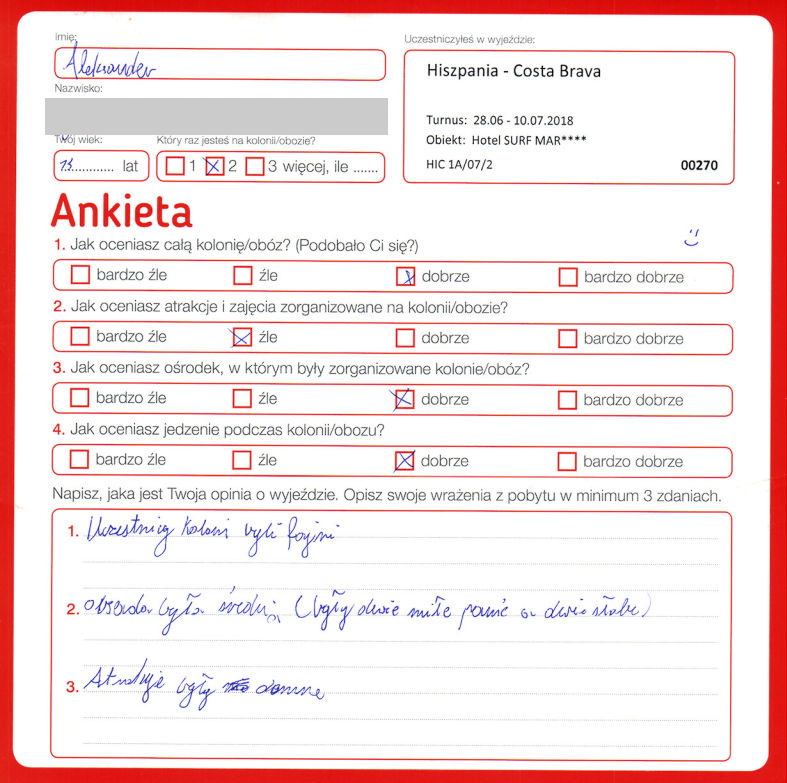 Imię:
Aleksander
Nazwisko:
Twój wiek:
13 ............ lat
Który raz jesteś na kolonii/obozie?
1 2 3 więcej, ile .......
Uczestniczyłeś w wyjeździe:
Hiszpania - Costa Brava
Turnus: 28.06 - 10.07.2018
Obiekt: Hotel SURF MAR****
HIC 1A/07/2 00270
Ankieta
1. Jak oceniasz całą kolonię/obóz? (Podobało Ci się?)
bardzo źle źle dobrze bardzo dobrze
2. Jak oceniasz atrakcje i zajęcia zorganizowane na kolonii/obozie?
bardzo źle źle dobrze bardzo dobrze
3. Jak oceniasz ośrodek, w którym były zorganizowane kolonie/obóz?
bardzo źle źle dobrze bardzo dobrze
4. Jak oceniasz jedzenie podczas kolonii/obozu?
bardzo źle źle dobrze bardzo dobrze
Napisz, jaka jest Twoja opinia o wyjeździe. Opisz swoje wrażenia z pobytu w minimum 3 zdaniach.
1. Uczestnicy koloni byli fajni
2. obsada była średnia (były dwie miłe panie a dwie słabe)
3. Atrakcje były